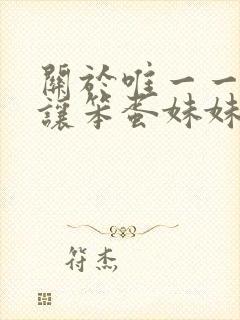 關於唯一一
讓笨蛋妹妹
符杰